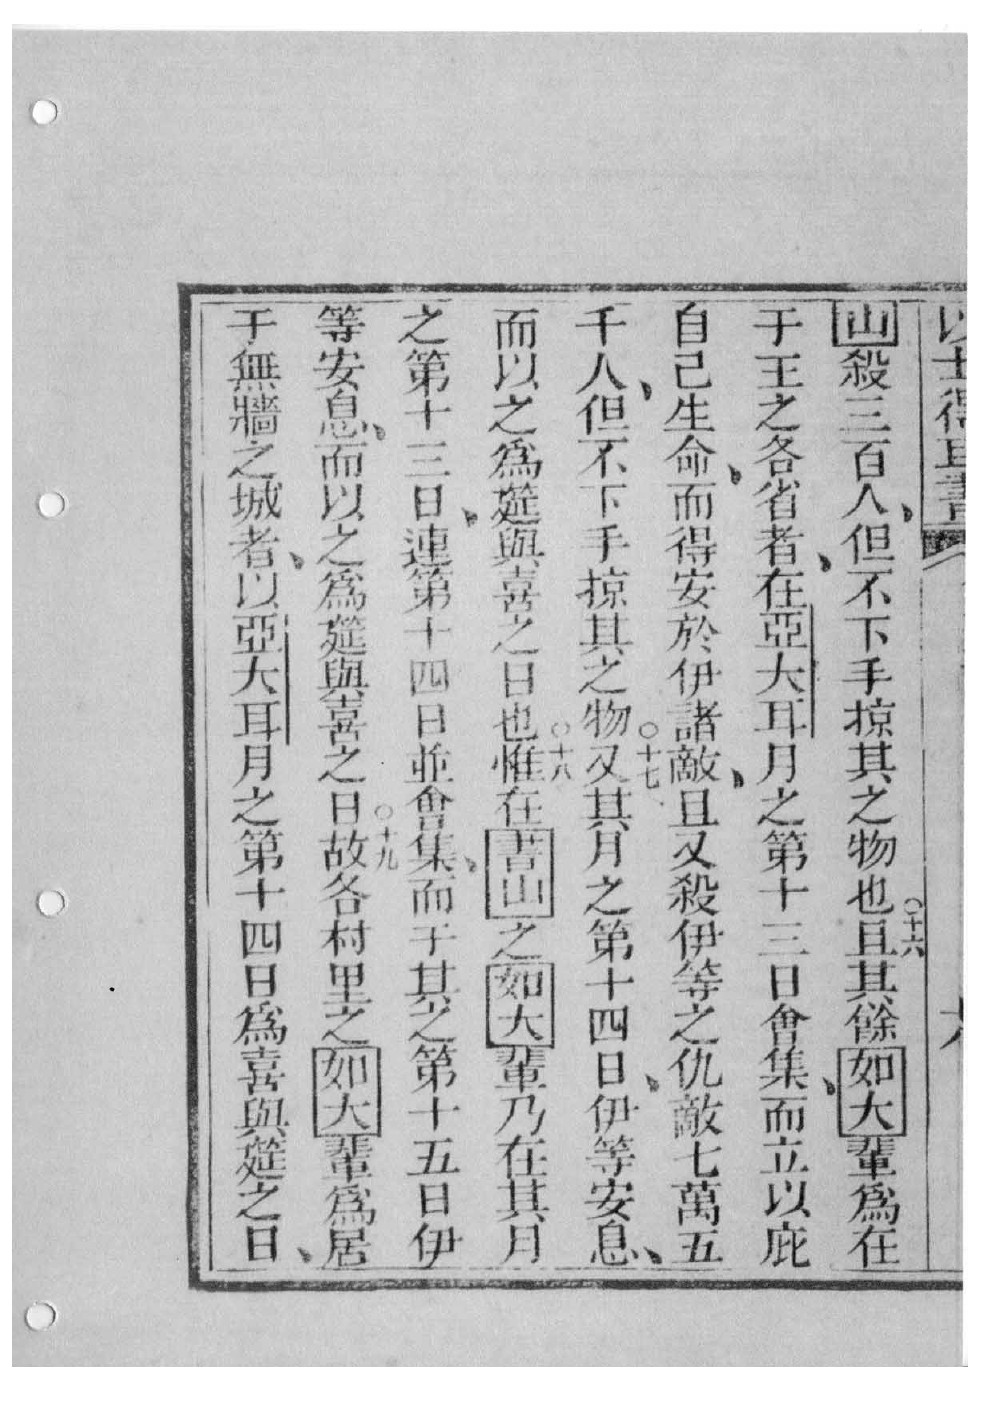 以士得耳書
山殺三百人、但不下手掠其之物也○十六且其餘如大輩爲在
于王之各省者、在亞大耳月之第十三日會集、而立以庇
自己生命、而得安於伊諸敵、且又殺伊等之仇敵七萬五
千人、但不下手掠其之物○十七又其月之第十四日、伊等安息、
而以之爲筵與喜之日也○十八惟在書山之如大輩乃在其月
之第十三日、連第十四日並會集、而于其之第十五日伊
等安息、而以之爲筵與喜之日○十九故各村里之如大輩爲居
于無牆之城者、以亞大耳月之第十四日爲喜與筵之日、